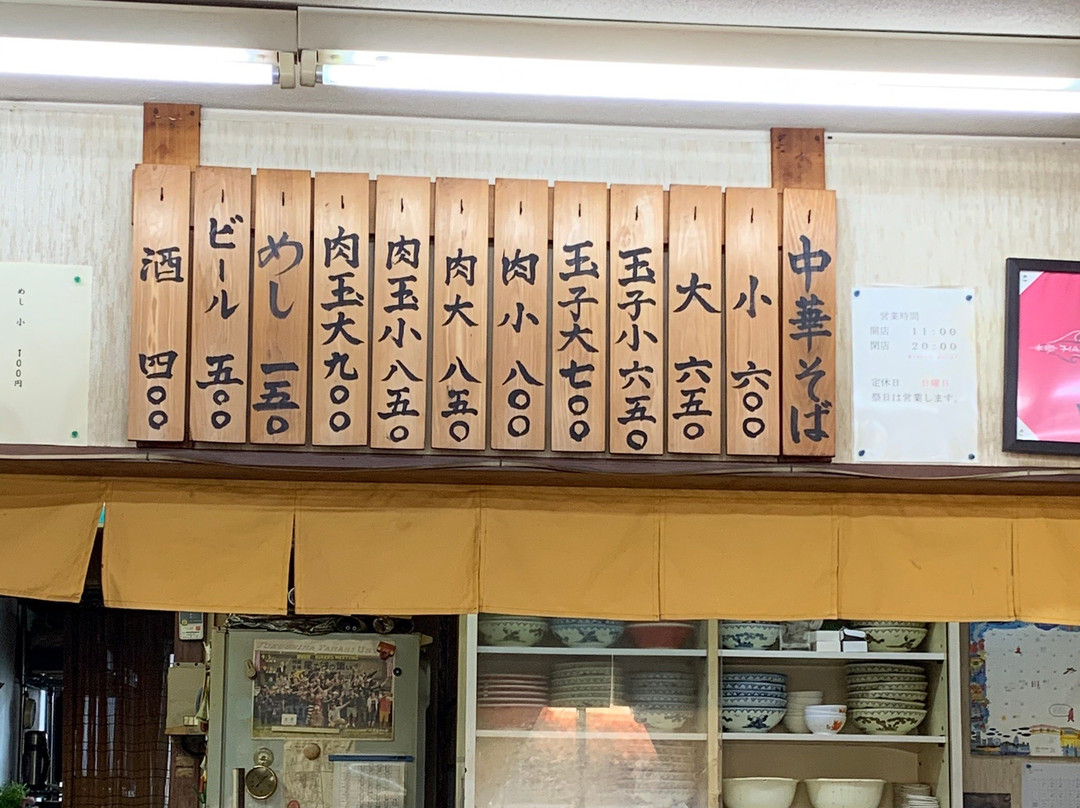 中華そば
小 六〇〇
大 六五〇
玉子小 六五〇
玉子大 七〇〇
肉小 八〇〇
肉大 八五〇
肉玉小 八五〇
肉玉大 九〇〇
めし 一五〇
ビール 五〇〇
酒 四〇〇
営業時間
開店 11:00
閉店 20:00
定休日 日曜日
祭日は営業します。
めし 小 100円